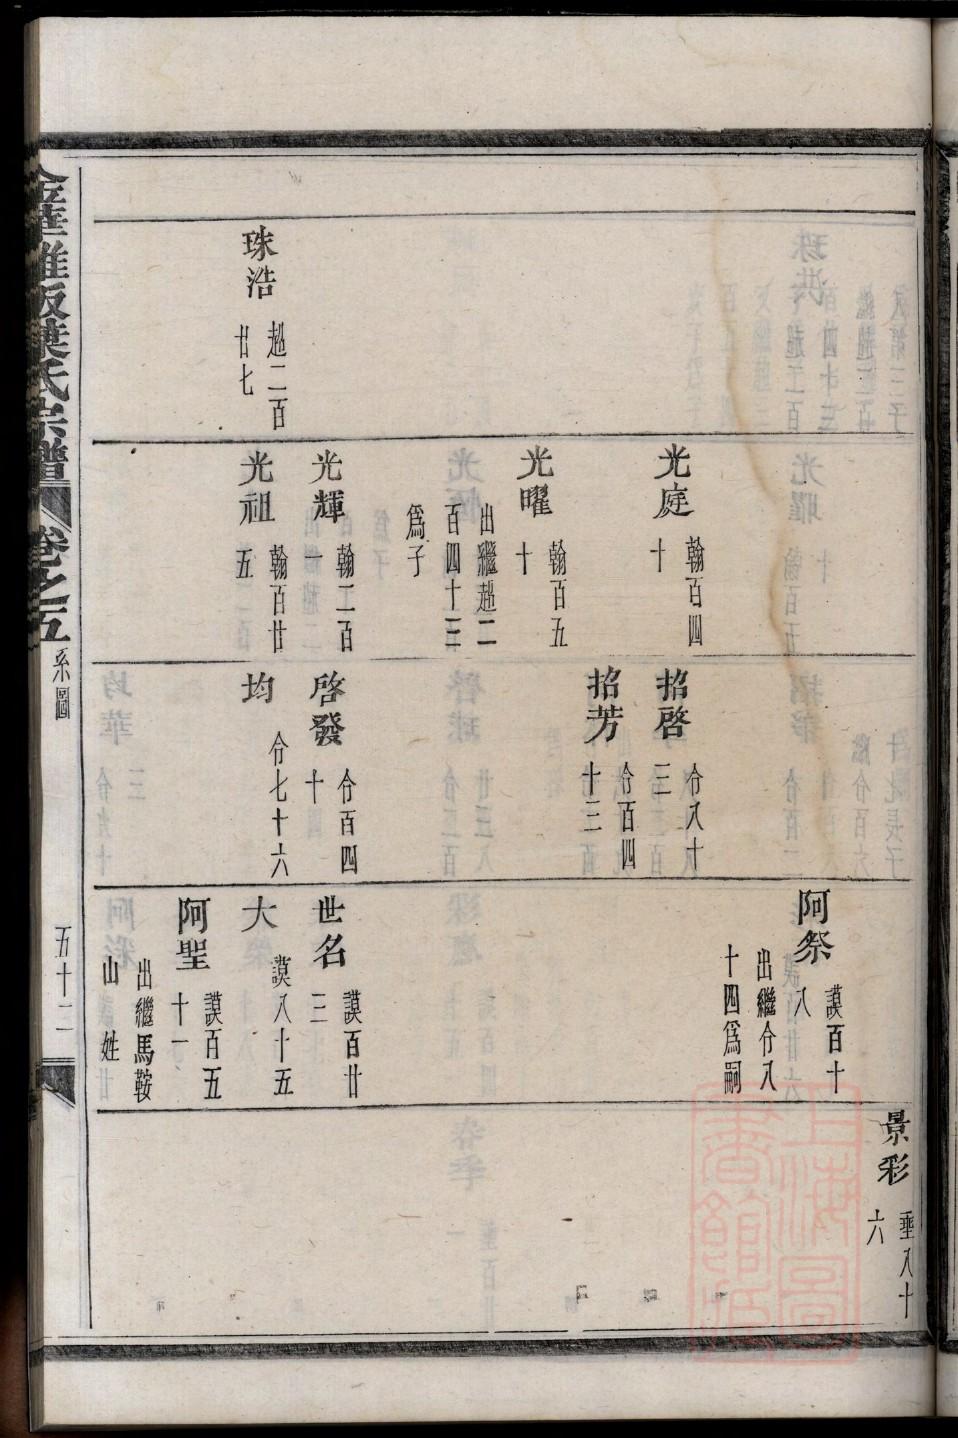 珠浩 趙二百
廿七
光庭 翰百四
十
光曜 翰百五
十
出繼趙二
百四十三
爲子
光輝 翰二百
一
光祖 翰百廿
五
招啓 㒰八十
三
招芳 㒰百四
十三
啓發 㒰百四
十
均 㒰七十六
阿祭 謨百十
八
出繼㒰八
十四爲嗣
世名 謨百廿
三
大 謨八十五
阿聖 謨百五
十一
出繼馬鞍
山 姓
景彩 垂八十
六
葉氏宗譜 卷之五 系圖 五十二
上海圖書館藏